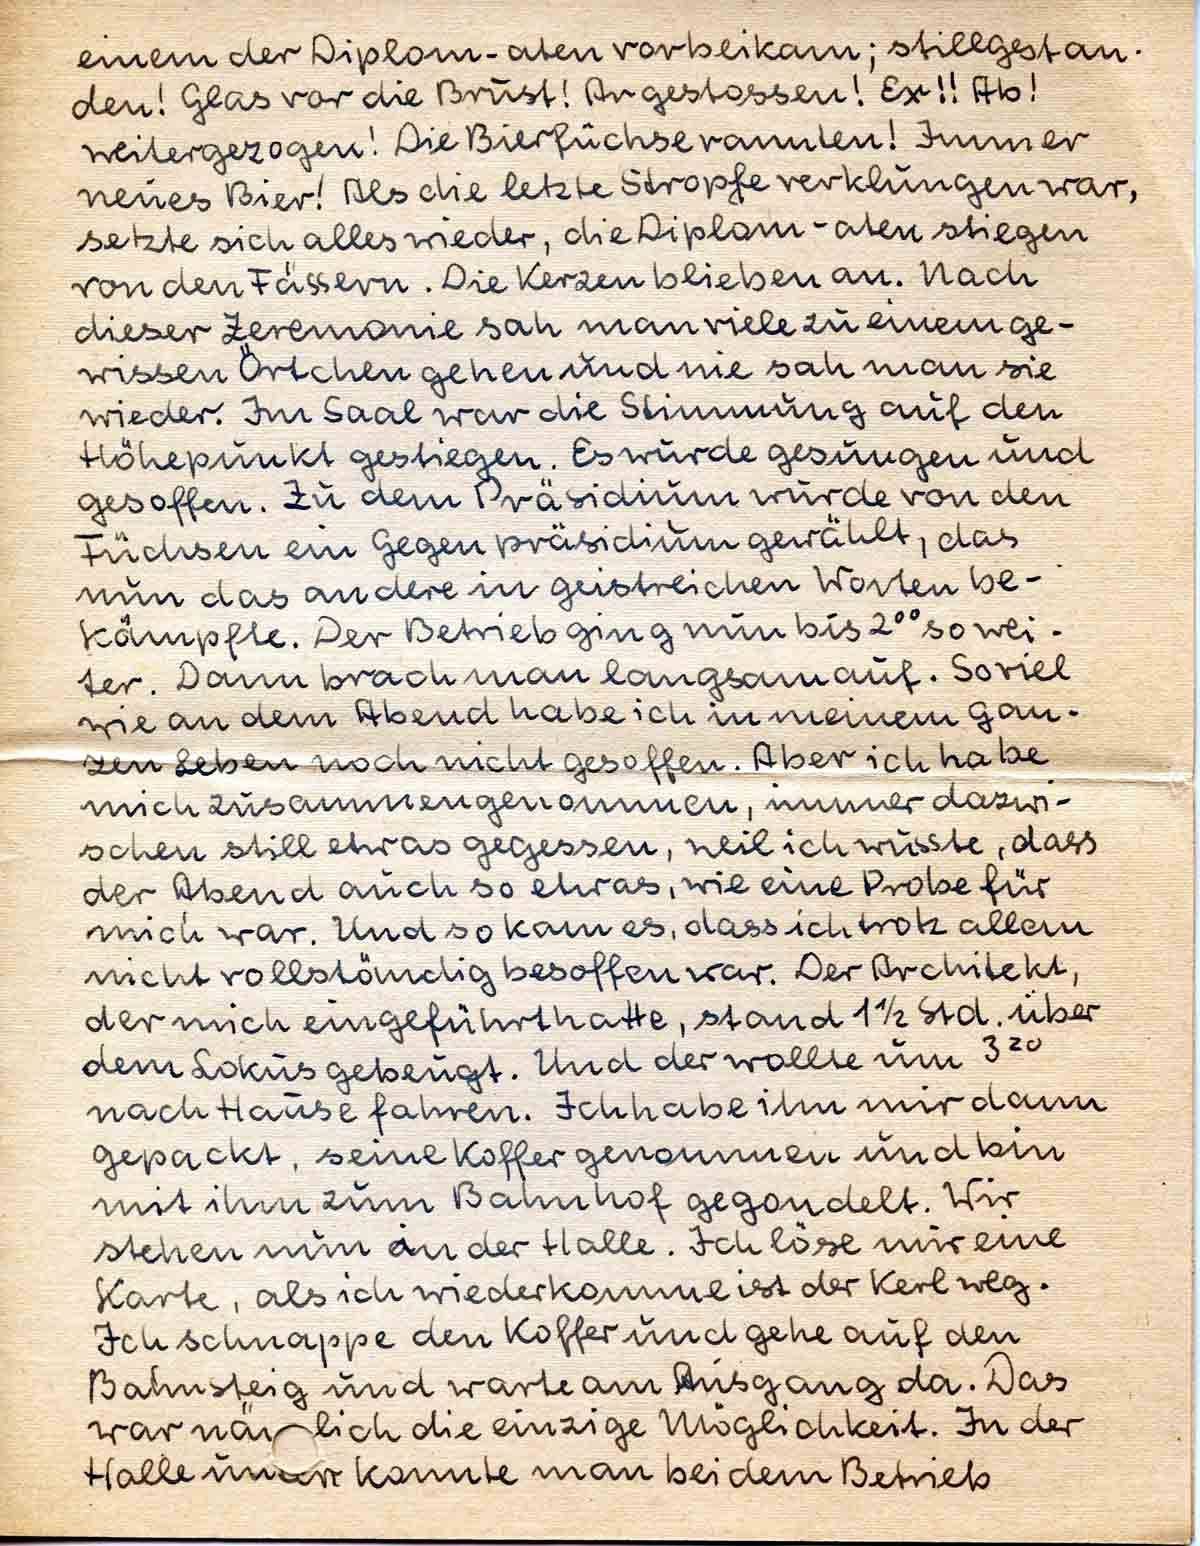 einem der Diplom-aten vorbeikam; stillgestan-
den! Glas vor die Brust! Angestossen! Ex!! Ab!
weitergezogen! Die Bierfüchse rannten! Immer
neues Bier! Als die letzte Stropfe verklungen war,
setzte sich alles wieder, die Diplom-aten stiegen
von den Fässern. Die Kerzen blieben an. Nach
dieser Zeremonie sah man viele zu einem ge-
wissen Örtchen gehen und nie sah man sie
wieder. Im Saal war die Stimmung auf den
Höhepunkt gestiegen. Es wurde gesungen und
gesoffen. Zu dem Präsidium wurde von den
Füchsen ein Gegenpräsidium gewählt, das
nun das andere in geistreichen Worten be-
kämpfte. Der Betrieb ging nun bis 2⁰⁰ so wei-
ter. Dann brach man langsam auf. Soviel
wie an dem Abend habe ich in meinem gan-
zen Leben noch nicht gesoffen. Aber ich habe
mich zusammengenommen, immer dazwi-
schen still etwas gegessen, weil ich wusste, dass
der Abend auch so etwas, wie eine Probe für
mich war. Und so kam es, dass ich trotz allem
nicht vollständig besoffen war. Der Architekt,
der mich eingeführt hatte, stand 1 1/2 Std. über
dem Lokus gebeugt. Und der wollte um 3²⁰
nach Hause fahren. Ich habe ihn mir dann
gepackt, seine Koffer genommen und bin
mit ihm zum Bahnhof gegondelt. Wir
stehen nun in der Halle. Ich löse mir eine
Karte, als ich wiederkomme ist der Kerl weg.
Ich schnappe den Koffer und gehe auf den
Bahnsteig und warte am Ausgang da. Das
war nämlich die einzige Möglichkeit. In der
Halle unten konnte man bei dem Betrieb